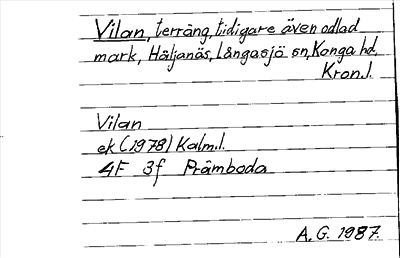 Vilan, terräng, tidigare även odlad
mark, Häljanäs, Långasjö sn, Konga hd,
Kron.l.
Vilan
ek (1978) Kalm.l.
4F 3f Främboda
A.G. 1987.